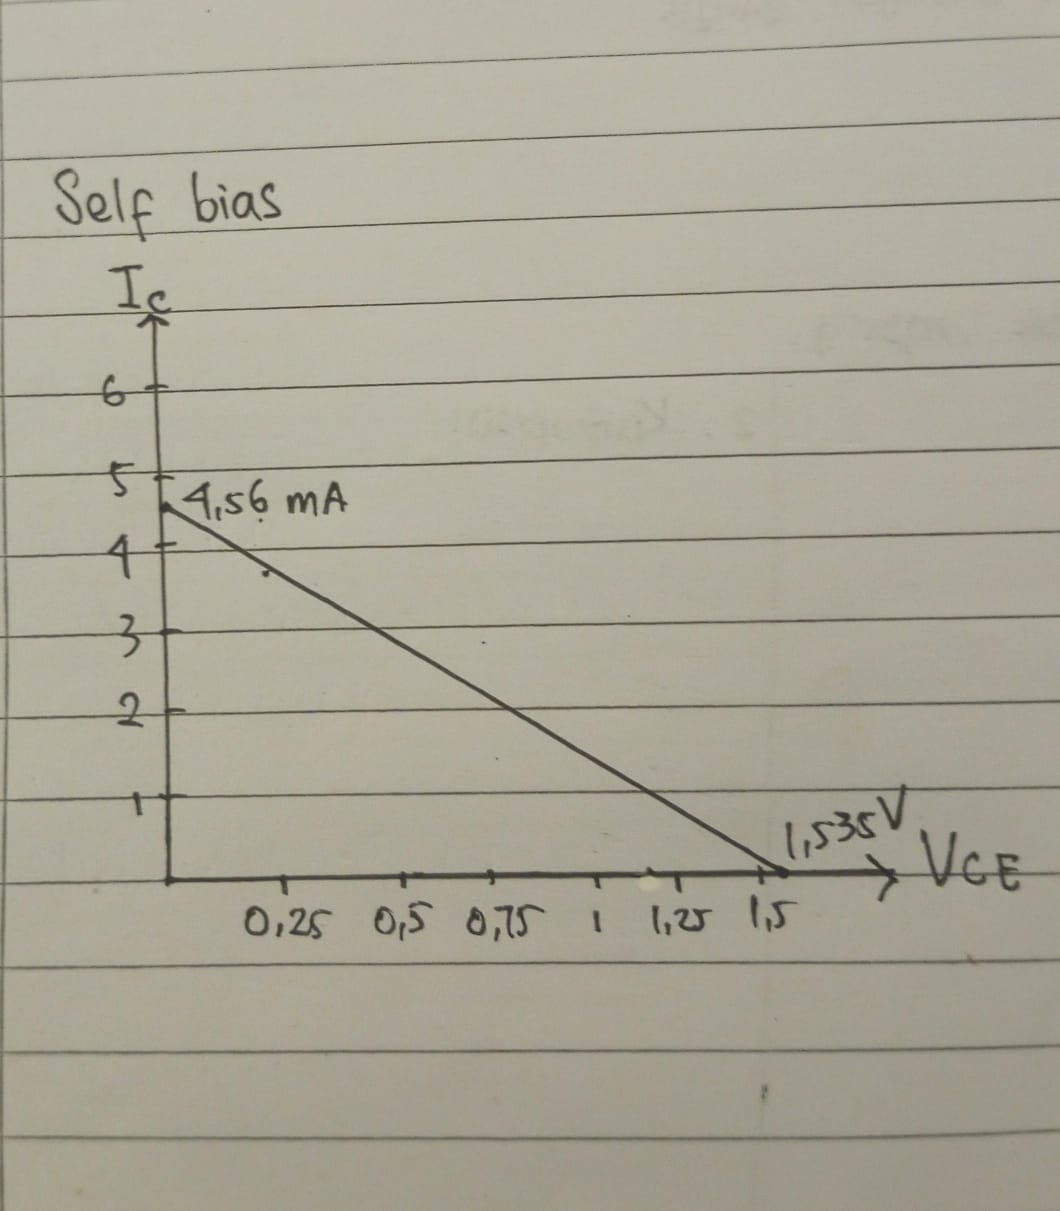 Self bias
Ic
6
5
4,56 mA
4
3
2
1
1,535V
VCE
0,25 0,5 0,75 1 1,25 1,5